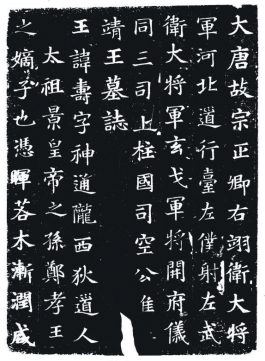 大唐故宗正卿右翊衛大將
軍河北道行臺左僕射左武
衛大将軍玄戈軍将開府儀
同三司上柱國司空公淮
靖王墓誌
王諱壽字神通隴西狄道人
太祖景皇帝之孫鄭孝王
之嫡子也憑暉若木漸潤咸